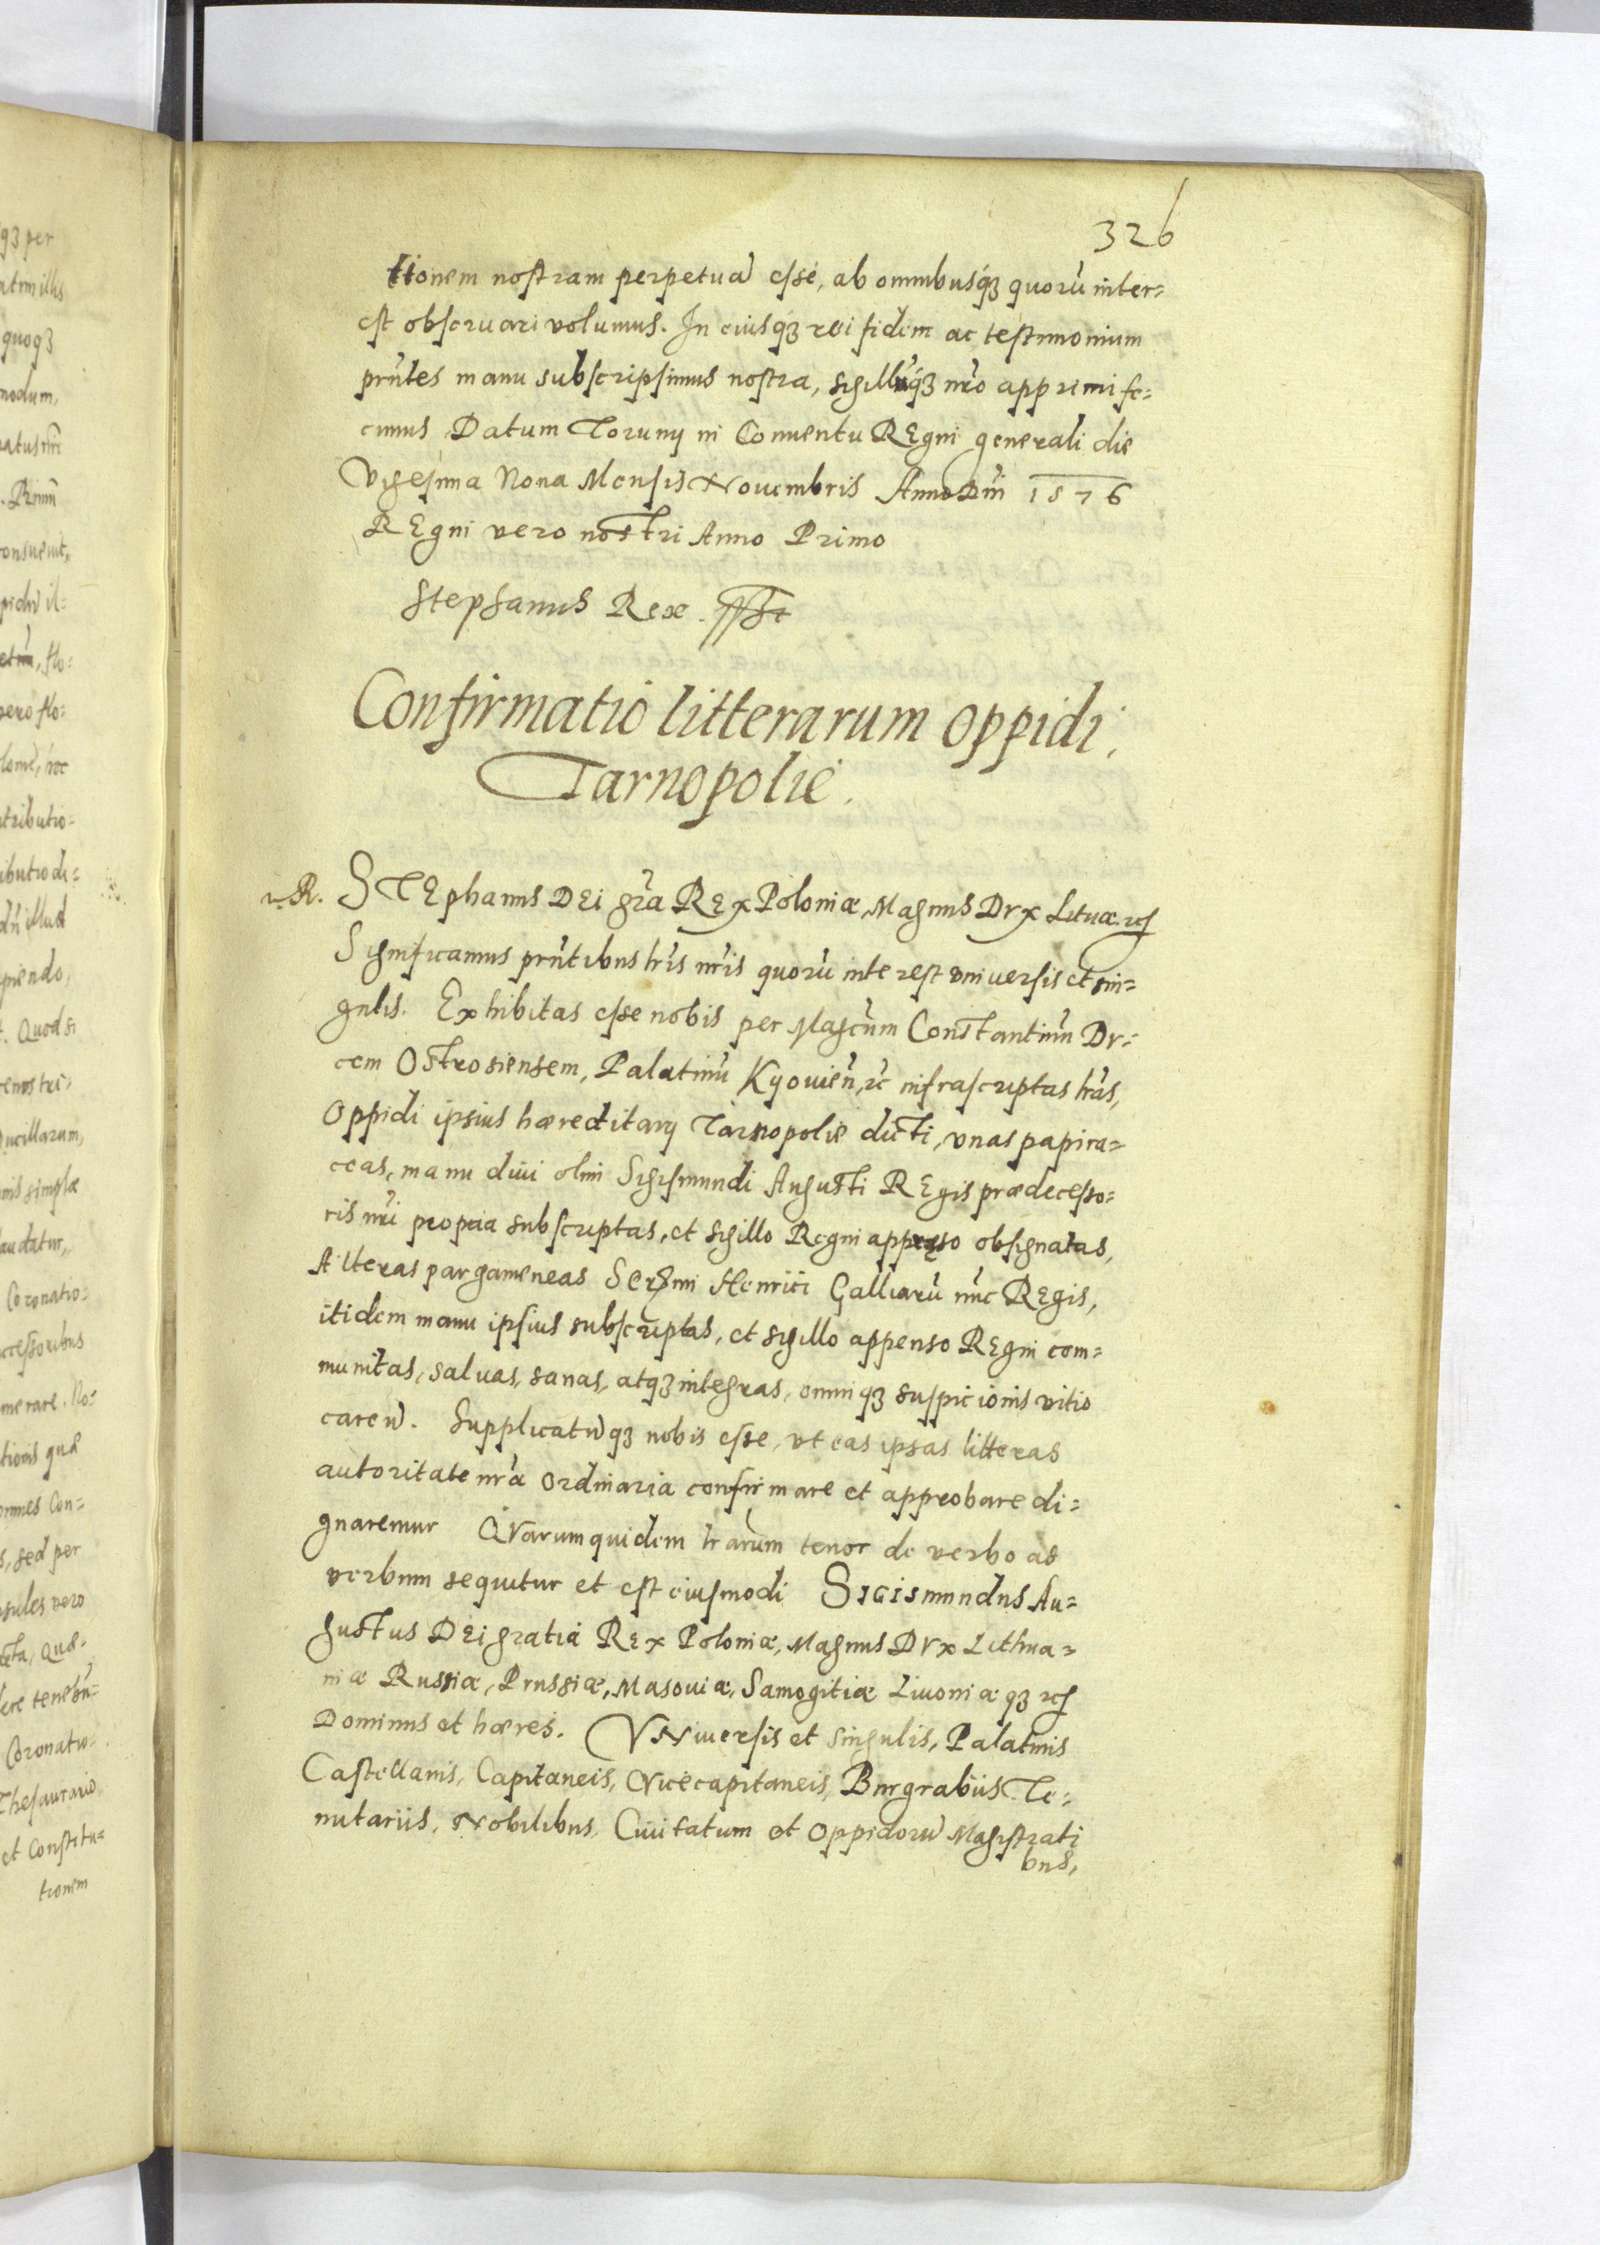 326
tionem nostram perpetuã esse, ab omnibusq3 quorũ inter=
est obseruari volumus. In eiusq3 rei fidem ac testimonium
prñtes manu subscripsimus nostra, sigillũq3 nr̃o apprimi fe=
cimus Datum Toruny in Conuentu REgni generali die
Vigesima Nona Mensis Nouembris Anno Dñi 1576
REgni vero nostri Anno Primo
Stephanus Rex
Confirmatio litterarum oppidi
Tarnopolie.
R. STEphanus DEi gr̃a REx Poloniæ, Magnus Dvx Lituæ. etc
Significamus prñtibus lr̃is nr̃is quorũ interest vniuersis et sin=
gulis. Exhibitas esse nobis per Magcũm Constantinũ Dv=
cem Ostrosiensem, Palatinũ Kyouieñ, etc infrascriptas lr̃as,
Oppidi ipsius hæreditarij Tarnopolie dicti, vnas papira=
ceas, manu diui olim Sigismundi Augusti REgis prædecesso=
ris nr̃i propria subscriptas, et sigillo Regni appreso obsignatas,
Alteras pargameneas Serẽmi Henrici Galliarũ nũc REgis,
itidem manu ipsius subscriptas, et sigillo appenso REgni com=
munitas, saluas, sanas, atq3 integras, omniq3 suspicionis vitio
careñ. Supplicatũq3 nobis esse, vt eas ipsas litteras
autoritate nr̃a ordinaria confirmare et approbare di=
gnaremur QVarum quidem lr̃arum tenor de verbo ad
verbum sequitur et est eiusmodi SIGismundus Au=
gustus DEi gratia REx Poloniæ, Magnus DVx Lithua=
niæ Russiæ, Prussiæ, Masouiæ, Samogitiæ Liuoniæq3 etc
Dominus et hæres. VNiuersis et singulis, Palatinis
Castellanis, Capitaneis, Vicecapitaneis, Burgrabiis Te=
nutariis, Nobilibus, Ciuitatum et Oppidorũ Magistrati
bus,